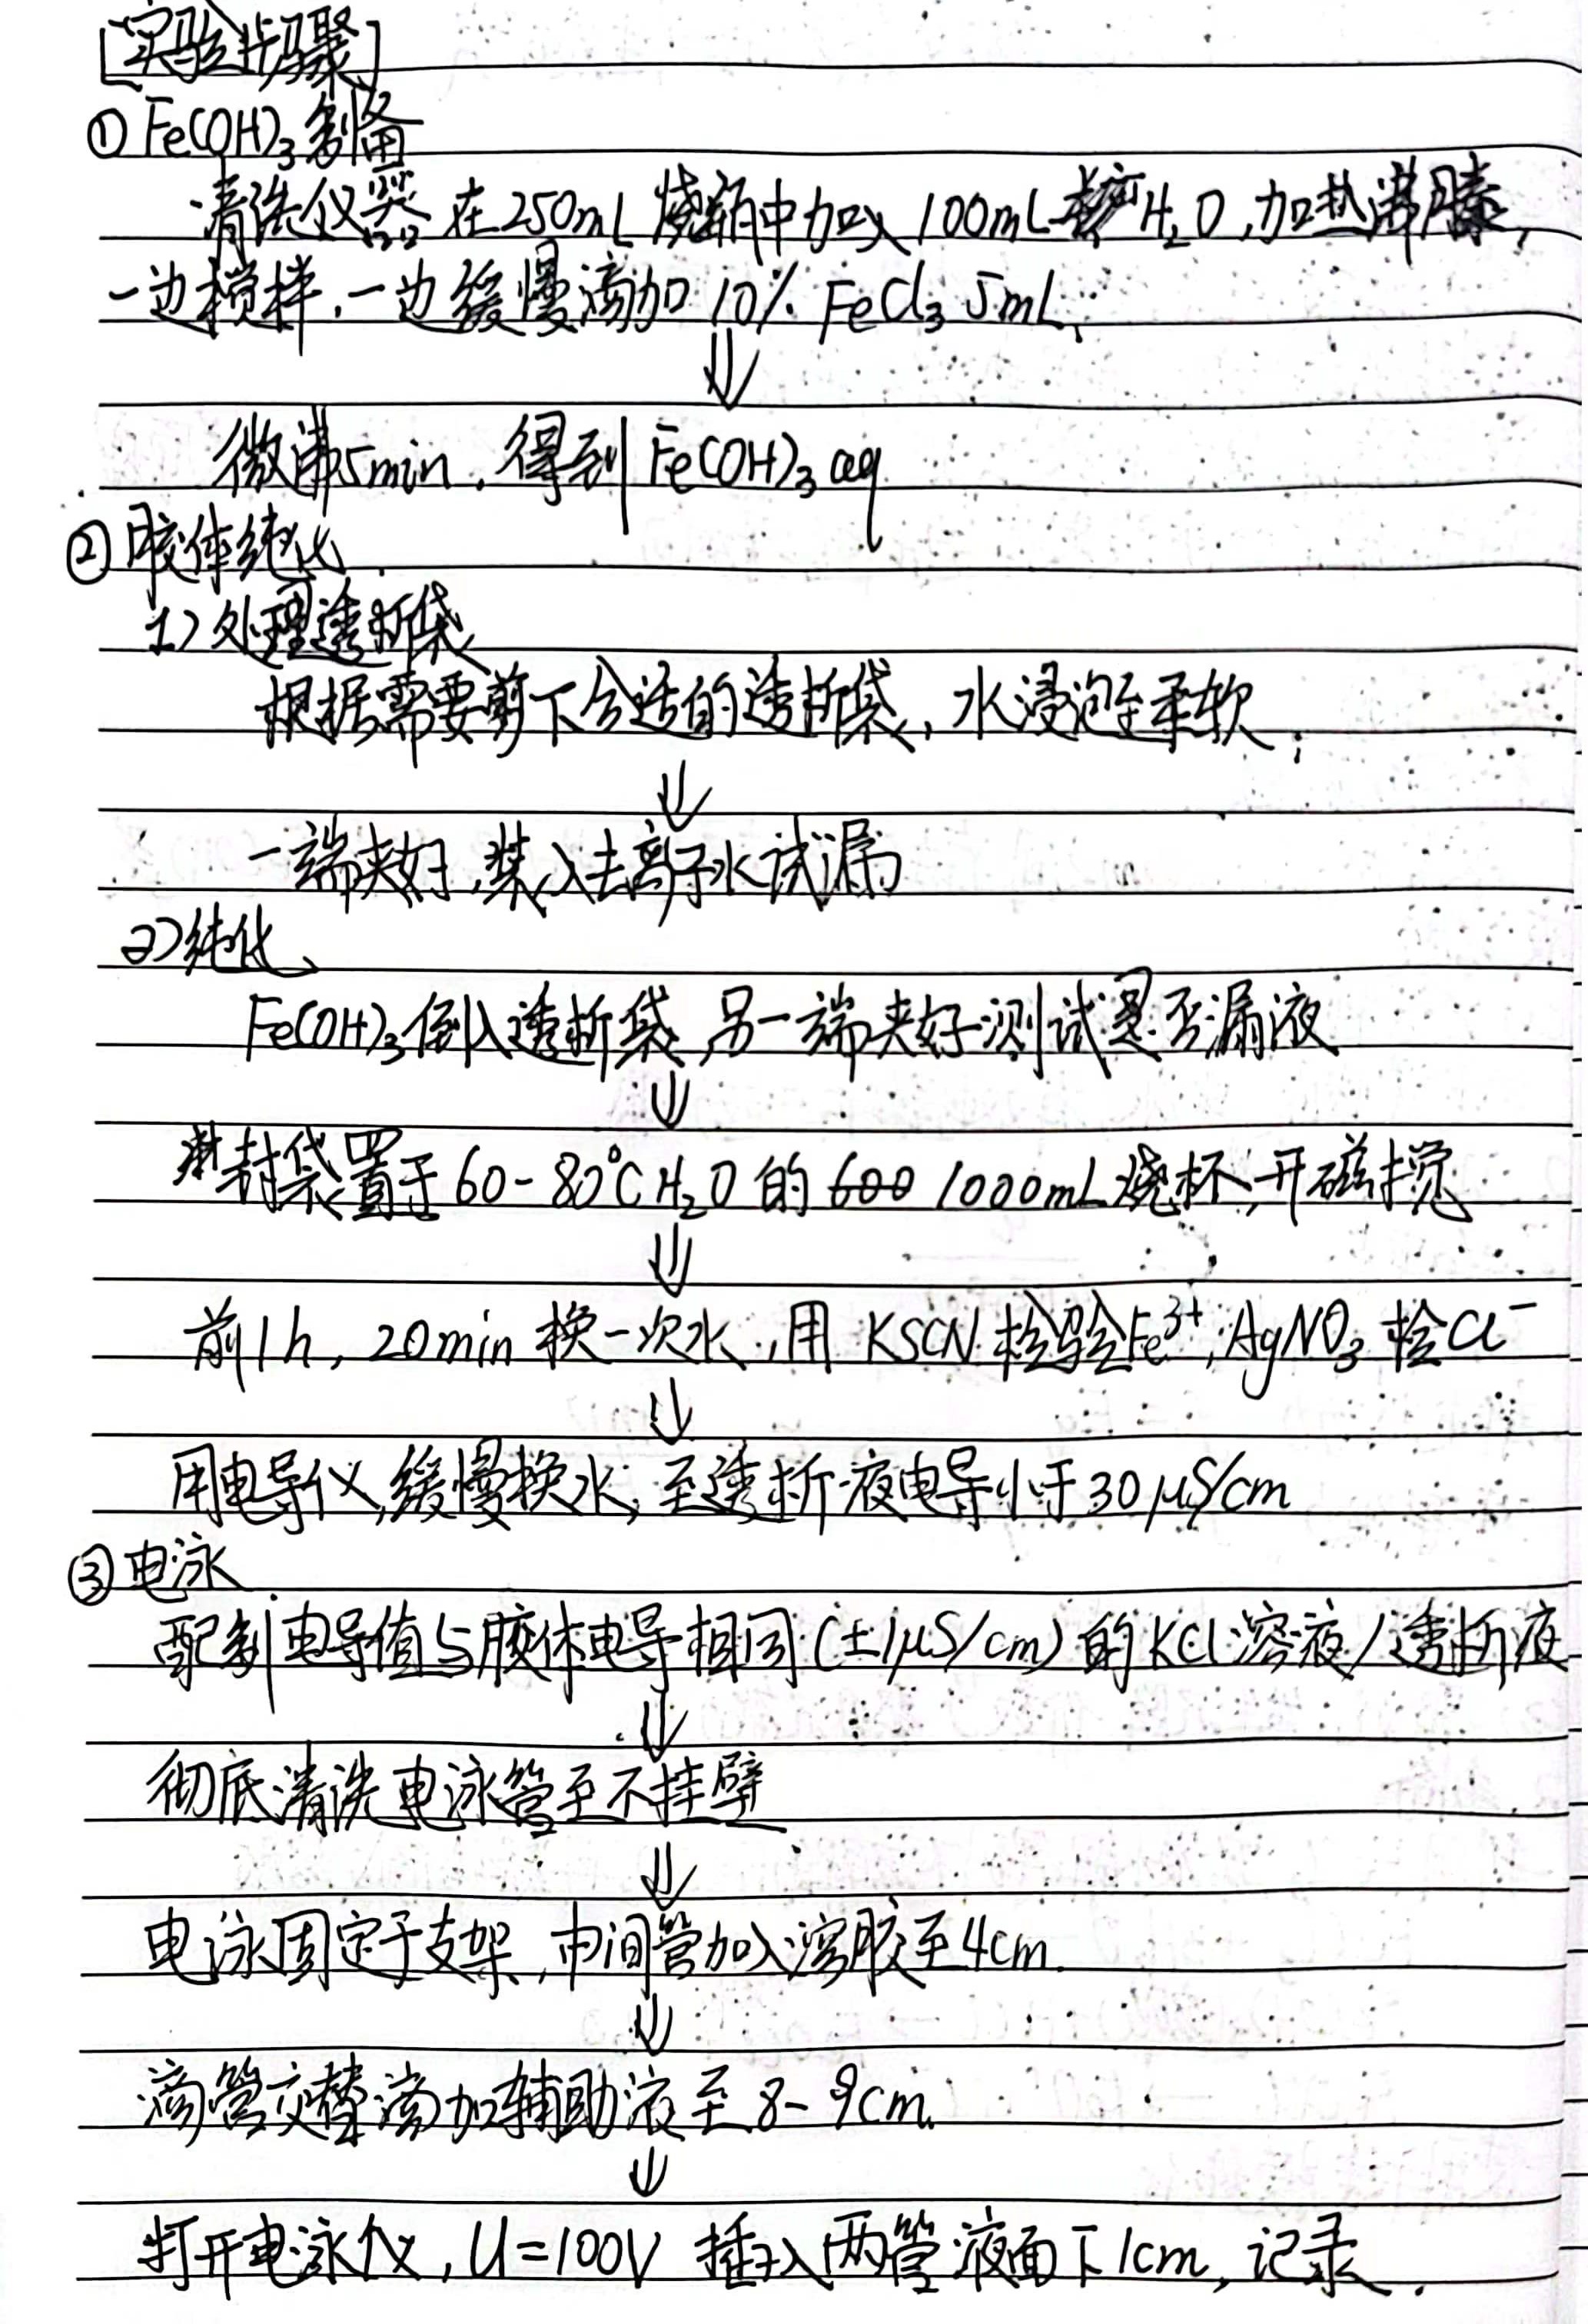 [实验步骤]
① Fe(OH)₃制备
清洗仪器.在250mL烧瓶中加入100mL H₂O,加热沸腾,
一边搅拌,一边缓慢滴加10% FeCl₃ 5mL,
⇓
微沸5min,得到Fe(OH)₃ aq
②胶体纯化
1)处理透析袋
根据需要剪下合适的透析袋,水浸泡至柔软;
⇓
一端夹好,装入去离子水试漏
2)纯化
Fe(OH)₃倒入透析袋,另一端夹好测试是否漏液
⇓
封袋置于60-80℃H₂O的 600 1000mL烧杯,开磁搅
⇓
前1h,20min换一次水,用KSCN检验Fe³⁺,AgNO₃检Cl⁻
⇓
用电导仪,缓慢换水,至透析液电导小于30μS/cm
③电泳
配制电导值与胶体电导相同(±1μS/cm)的KCl溶液/透析液
⇓
彻底清洗电泳管至不挂壁
⇓
电泳固定于支架,中间管加入溶胶至4cm.
⇓
滴管交替滴加辅助液至8-9cm.
⇓
打开电泳仪,U=100V 插入两管液面下1cm,记录.